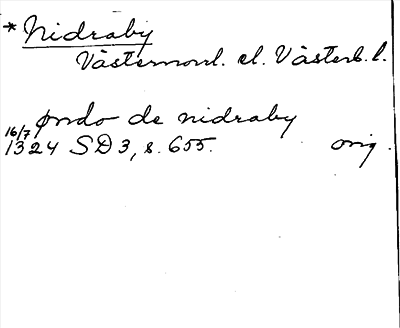 * Nidraby
Västmanl. el. Västerb. l.
pndo de nidraby
16/7 1324 SD 3, s. 655. orig.